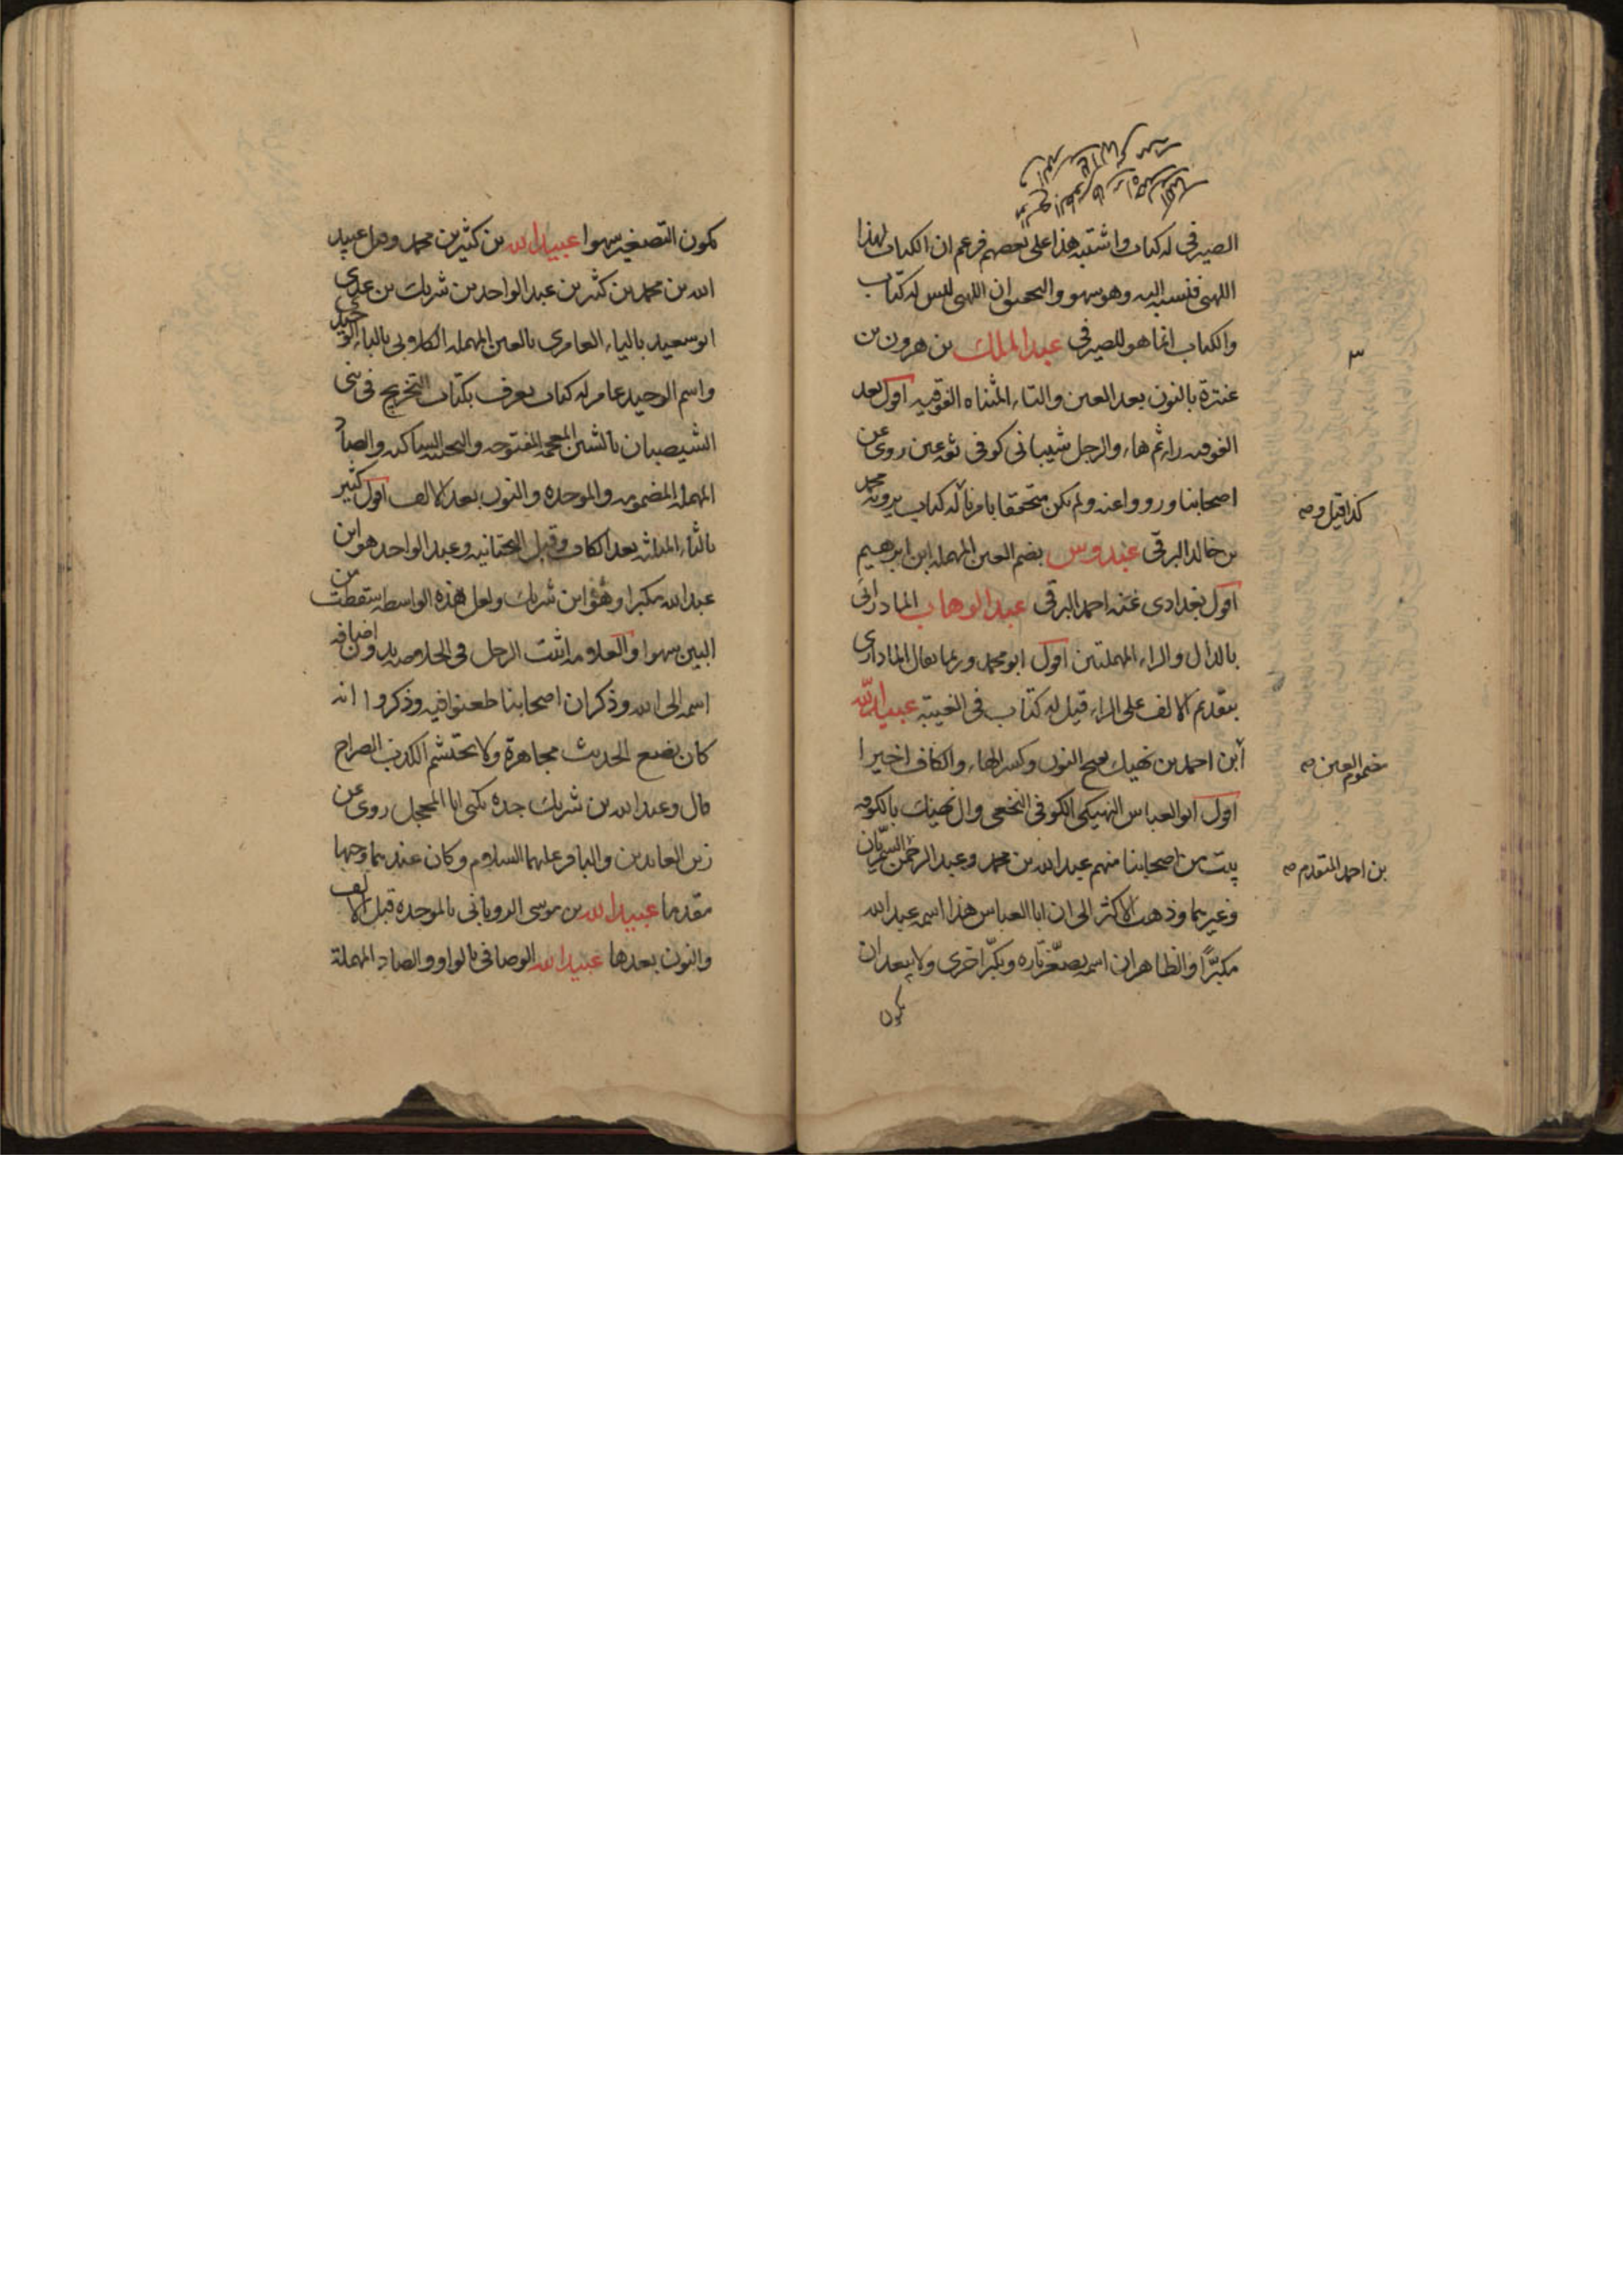 الصيرفي له كتاب واشتبه هذا على بعضهم فزعم ان الكتاب لهذا
اللهبي فنسبه اليه وهو سهو والتحقيق ان اللهبي ليس له كتاب
والكتاب انما هو للصيرفي عبد الملك بن هرون بن
عنترة بالنون بعد العين والتاء المثناه الفوقيه اقول بعد
الفوقيه راء ثم هاء والرجل شيباني كوفي ثقه عين روى عن
اصحابنا ورووا عنه ولم يكن متحققا بامرنا له كتاب يرويه محمد
بن خالد البرقي عبدوس بضم العين المهمله ابن ابرهيم
اقول بغدادى عنه احمد البرقي عبد الوهاب المادرائي
بالدال والراء المهملتين اقول ابو محمد وربما يقال المادارى
بتقديم الالف على الراء قيل له كتاب في الغيبة عبيد الله
ابن احمد بن نهيك بفتح النون وكسر الهاء والكاف اخيرا
اقول ابو العباس النهيكي الكوفي النخعي وال نهيك بالكوفه
بيت من اصحابنا منهم عبد الله بن محمد وعبد الرحمن السمريان
وغيرهما وذهب الاكثر الى ان ابا العباس هذا اسمه عبد الله
مكبرًا والظاهر ان اسمه يصغّر تاره ويكبّر اخرى ولا يبعد ان
يكون
٣
كذا قيل وصه
مضموم العين صه
بن احمد المتقدم صه
يكون التصغير سهوا عبيد الله بن كثير بن محمد وقيل عبيد
الله بن محمد بن كثير بن عبد الواحد بن شريك بن عدى
ابو سعيد بالياء العامرى بالعين المهمله الكلابي بالباء الوحيدى
واسم الوحيد عامر له كتاب يعرف بكتاب التخريج في بني
الشيصبان بالشين المعجمه المفتوحه والتحتيه الساكنه والصاد
المهمله المضمومه والموحده والنون بعد الالف اقول كثير
بالثاء المثلثه بعد الكاف وقبل التحتانيه وعبد الواحد هو ابن
عبد الله مكبرا وهو ابن شريك ولعل هذه الواسطه سقطت من
البين سهوا والعلامه اثبت الرجل في الخلاصه بدون اضافه
اسمه الى الله وذكر ان اصحابنا طعنوا فيه وذكروا انه
كان يضع الحديث مجاهرة ولا يحتشم الكذب الصراح
قال وعبد الله بن شريك جده يكنى ابا المحجل روى عن
زين العابدين والباقر عليهما السلام وكان عندهما وجيها
مقدما عبيد الله بن موسى الروياني بالموحده قبل الالف
والنون بعدها عبيد الله الوصافي بالواو والصاد المهملة